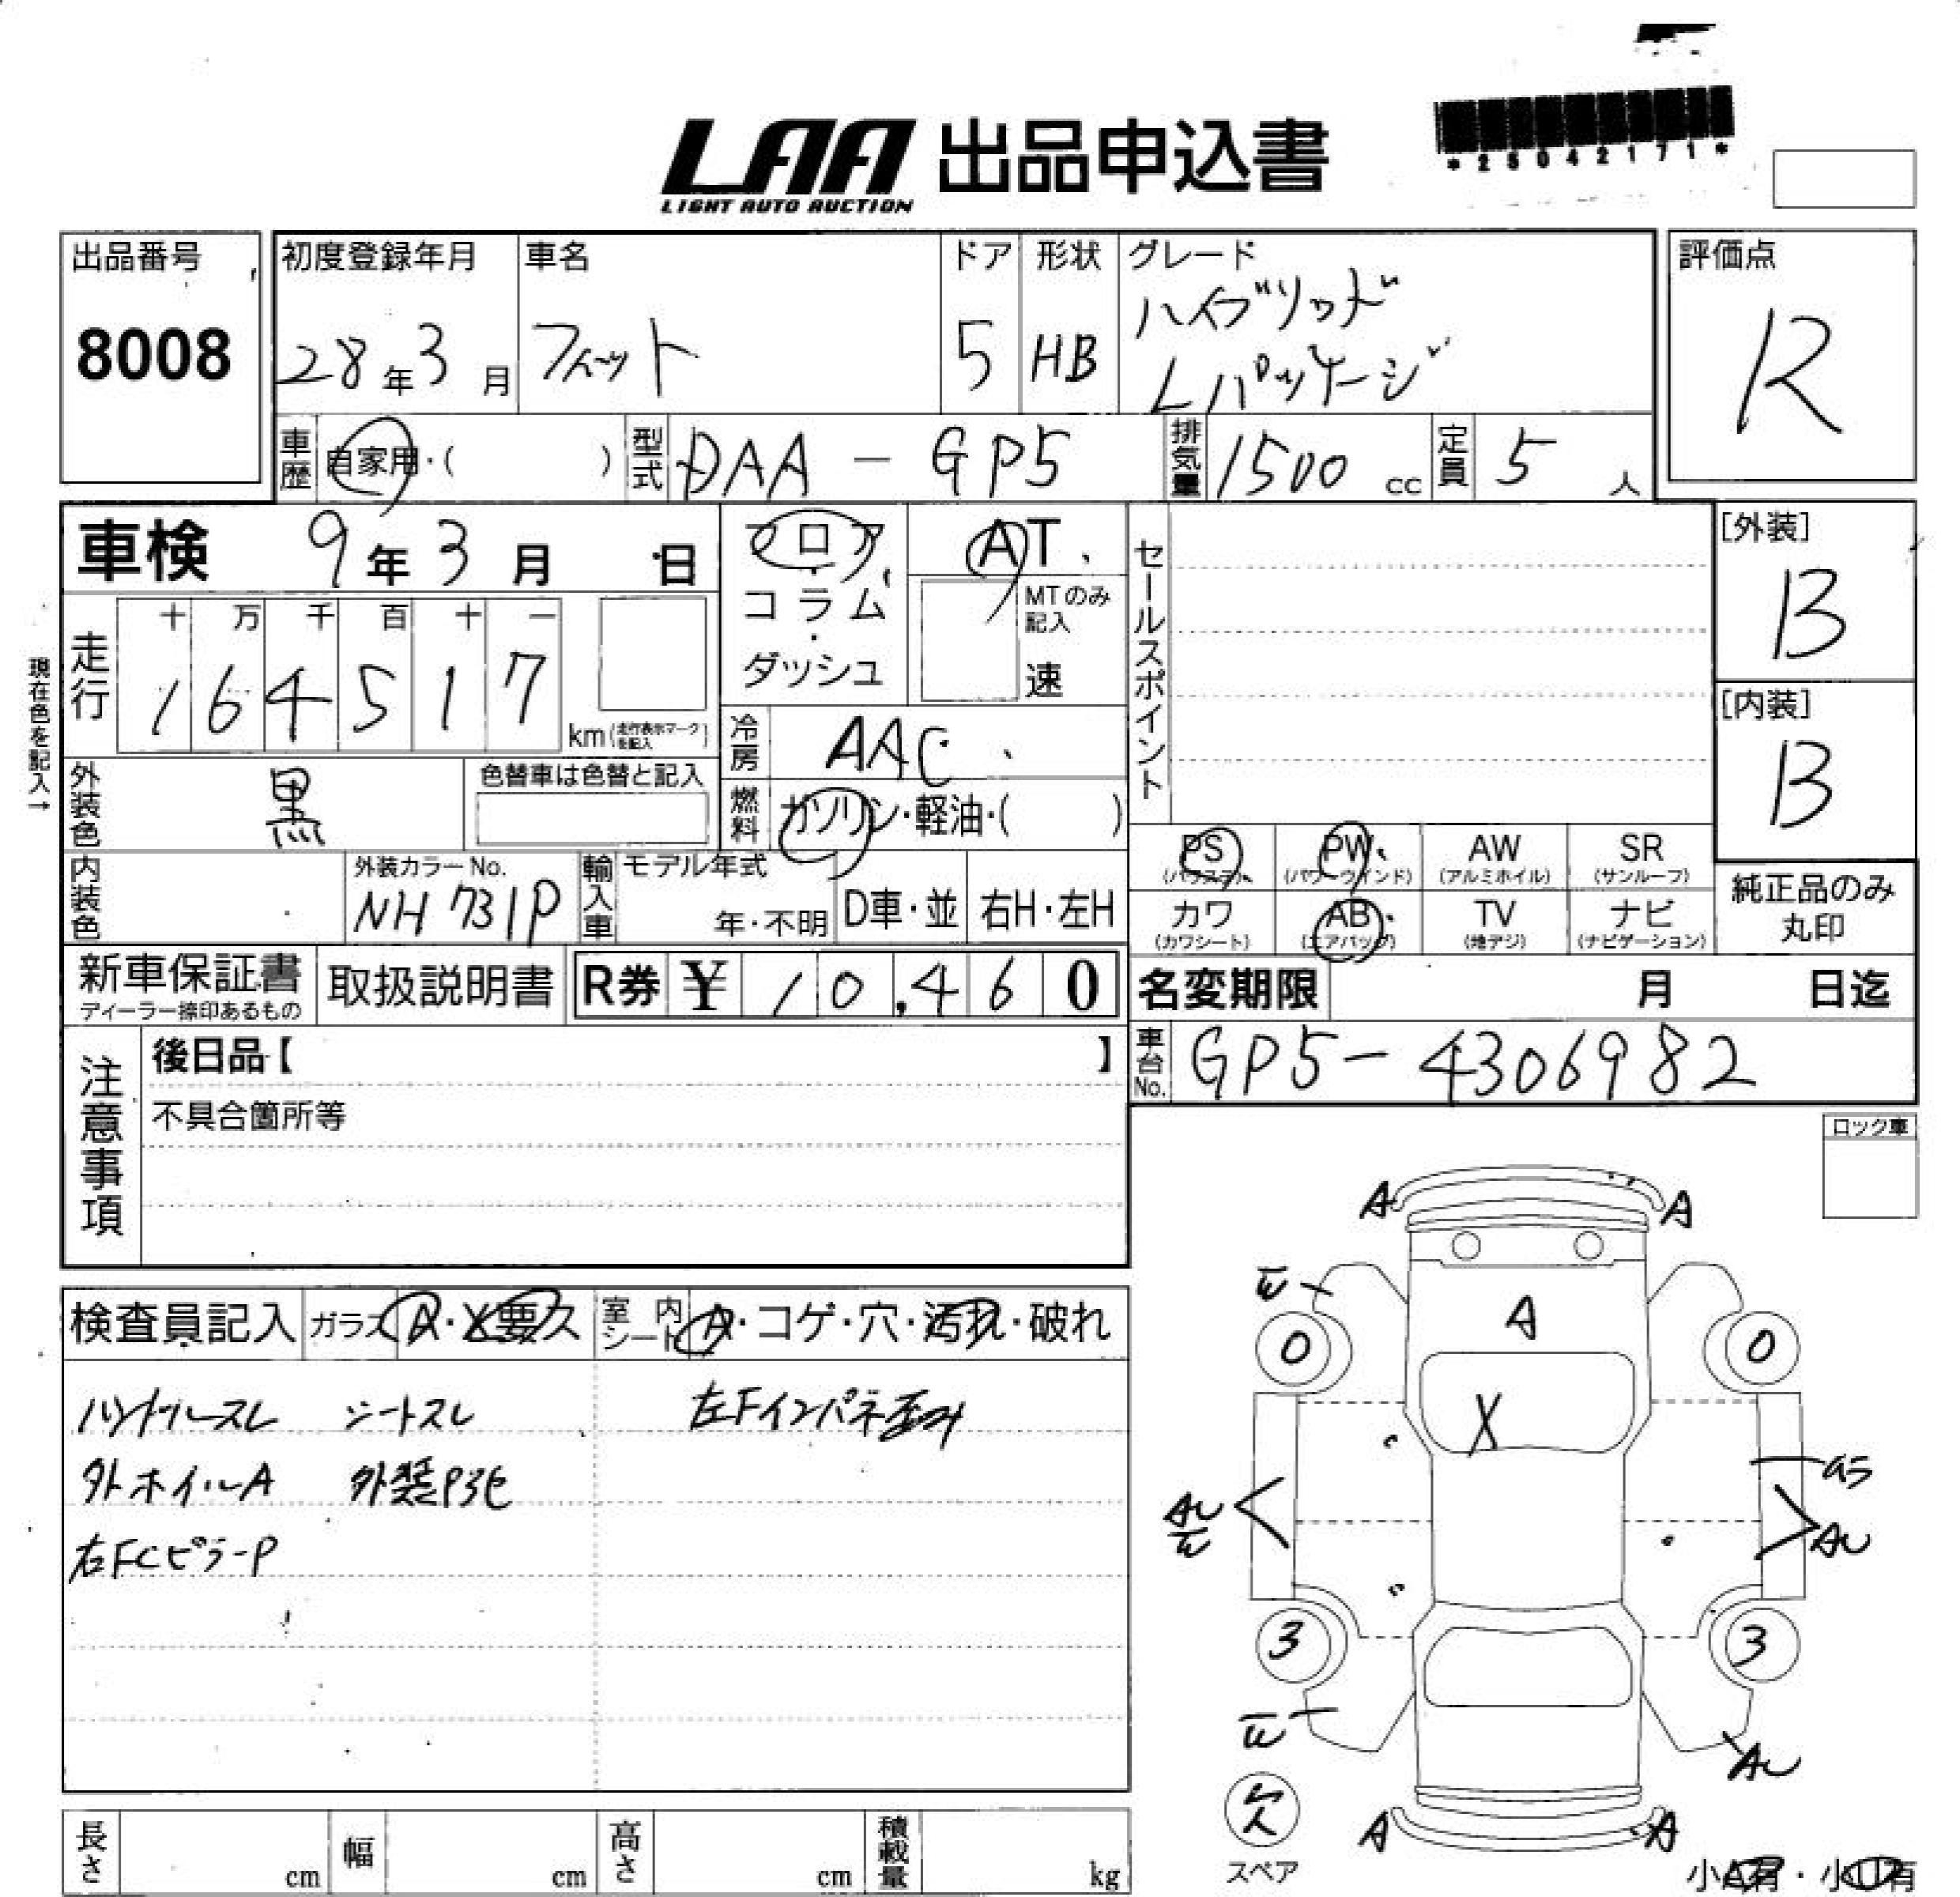 LAA 出品申込書
LIGHT AUTO AUCTION
*25042171*
出品番号
8008
初度登録年月
28年3月
車名
フィット
ドア
5
形状
HB
グレード
ハイブリッド
Lパッケージ
評価点
R
車歴
自家用・( )
型式
DAA-GP5
排気量
1500 cc
定員
5 人
車検 9年3月 日
フロア
・
コラム
・
ダッシュ
AT
MTのみ
記入
速
セールスポイント
[外装]
B
[内装]
B
走行
十 万 千 百 十 一
1 6 4 5 1 7
km(走行表示マークを記入)
現在色を記入→
冷房
AAC
外装色
黒
色替車は色替と記入
燃料
ガソリン・軽油・( )
内装色
外装カラーNo.
NH731P
輸入車
モデル年式
年・不明
D車・並
右H・左H
PS
(パワステ)
PW
(パワーウインド)
AW
(アルミホイル)
SR
(サンルーフ)
カワ
(カワシート)
AB
(エアバッグ)
TV
(地デジ)
ナビ
(ナビゲーション)
純正品のみ
丸印
新車保証書
ディーラー捺印あるもの
取扱説明書
R券 ¥ 10,460
名変期限 月 日迄
車台No.
GP5-4306982
注意事項
後日品【 】
不具合箇所等
ロック車
検査員記入
ガラス
A・X要ス
室内シート
A・コゲ・穴・汚れ・破れ
ハンドルスレ シートスレ 左Fインパネ歪み
外ホイルA 外装P3セ
右FCピラーP
A A
W
A
0 0
X
AU
W
AU
3 3
W
AU
欠
スペア
A A
小A有・小U有
長さ cm
幅 cm
高さ cm
積載量 kg